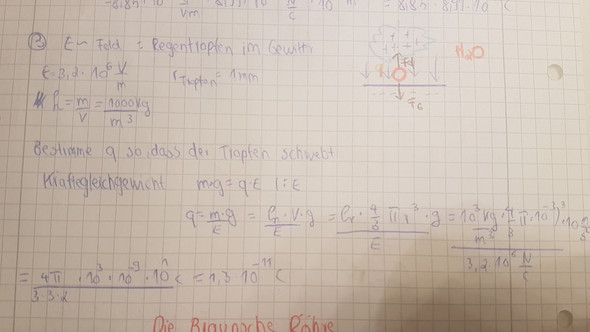 -8,85 · 10 Vm · 8,1 · 10 N/C · 10 m = 8,85 · 8,1 · 10 C
② E-Feld : Regentropfen im Gewitter
H₂O
E = 3,2 · 10⁶ V/m r Tropfen = 1mm
ρ = m/V = 1000kg/m³
F_G
Bestimme q so, dass der Tropfen schwebt
Kräftegleichgewicht m·g = q·E |:E
q = m·g/E = ρ·V·g/E = ρ · 4/3 π r³ · g/E = 10³ kg/m³ · 4/3 π · (10⁻³)³ · 10 / 3,2 · 10⁶ N/C
= 4π/3·3,2 · 10³ · 10⁻⁹ · 10¹ C = 1,3 10⁻¹¹ C
Die Braunsche Röhre